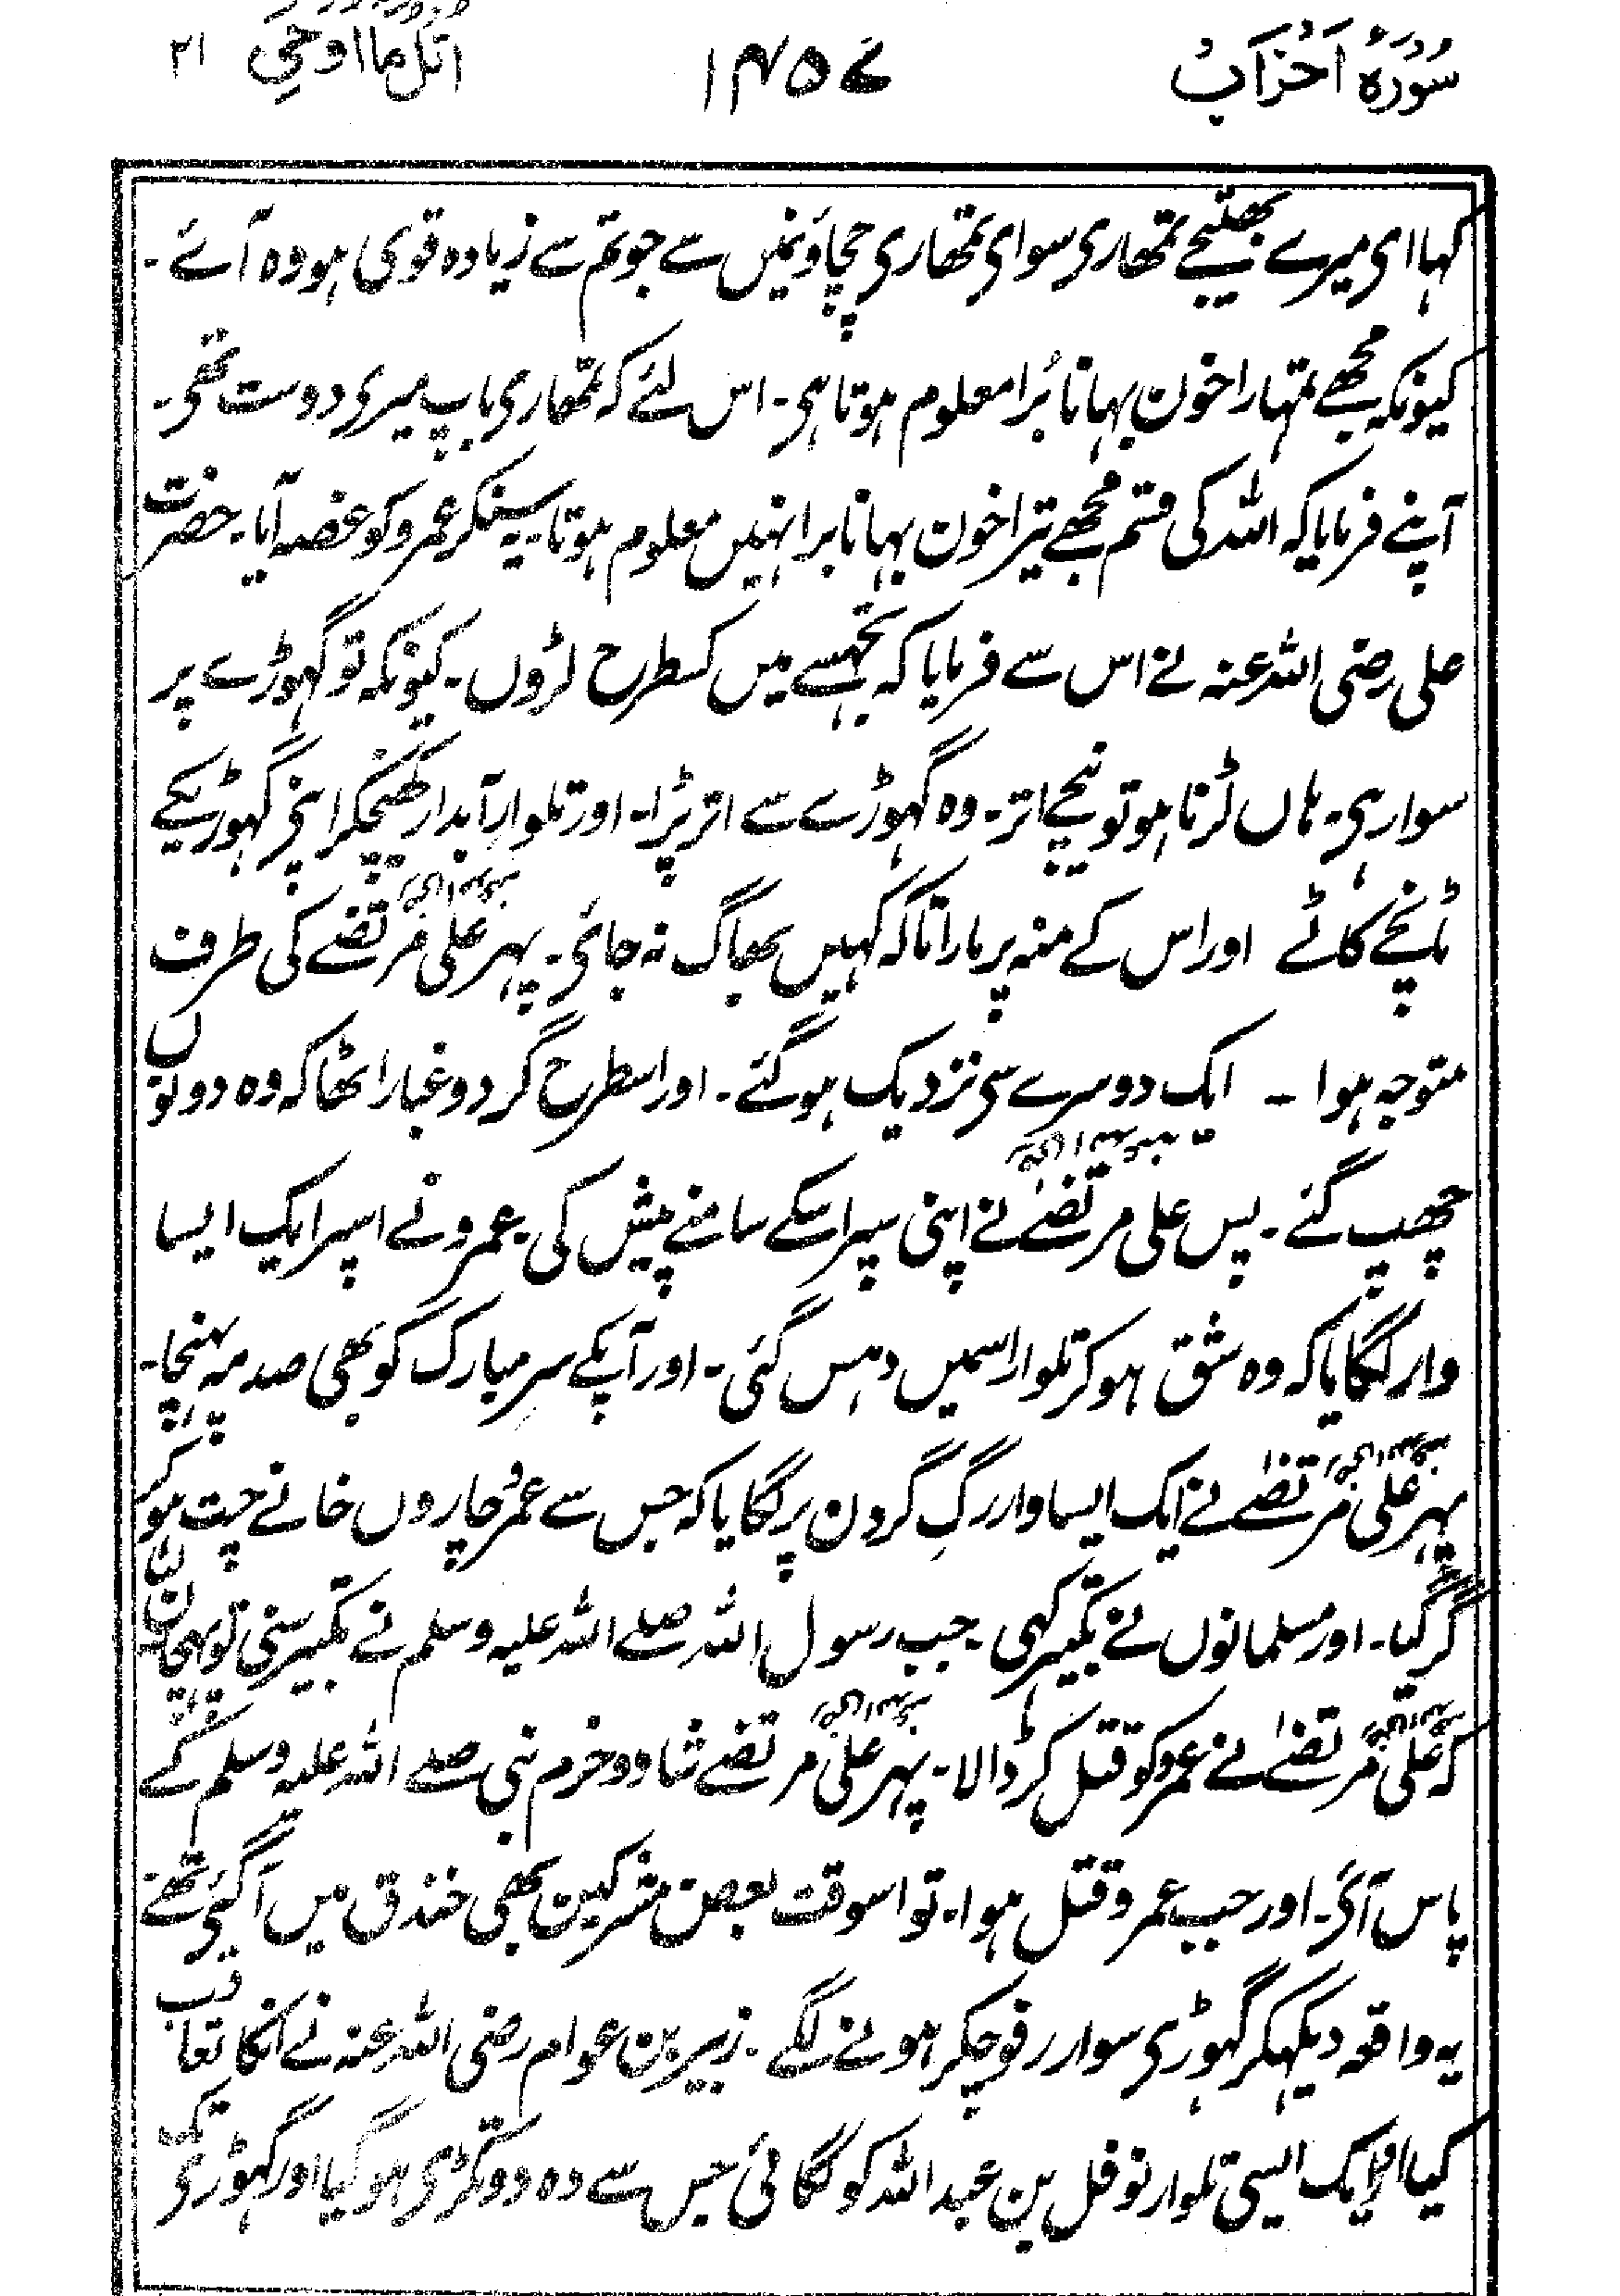 سُوْرَۃُ اَحْزَابْ
۱۴۵۷
اُتْلُ مَا اُوْحِیَ ۲۱
کہا ای میرے بھتیجے تمھاری سوای تمھاری چچاؤنمیں سے جو تم سے زیادہ قوی ہو وہ آئے ۔
کیونکہ مجھے تمہارا خون بہانا بُرا معلوم ہوتا ہی ۔ اس لئے کہ تمھاری باپ میری دوست تھی ۔
آپنے فرمایا کہ اللہ کی قسم مجھے تیرا خون بہانا برا نہیں معلوم ہوتا ۔ یہ سنکر عمرو کو غصہ آیا ۔ حضرت
علی رضی اللہ عنہ نے اس سے فرمایا کہ تجھسے میں کسطرح لڑوں ۔ کیونکہ تو گہوڑے پر
سوار ہی ۔ ہاں لڑنا ہو تو نیچے اتر ۔ وہ گہوڑے سے اتر پڑا ۔ اور تلوارِ آبدار کھینچکر اپنی گہوڑیکے
ٹانچے کاٹے اور اس کے منہ پر مارا تاکہ کہیں بھاگ نہ جائی ۔ پہر علی مرتضے کی طرف
متوجہ ہوا ۔ ایک دوسرے سی نزدیک ہوگئے ۔ اور اسطرح گرد و غبار اٹھا کہ وہ دونوں
چھپ گئے ۔ پس علی مرتضےٰ نے اپنی سپر اسکے سامنے پیش کی ۔ عمرو نے اسپر ایک ایسا
وار لگایا کہ وہ شق ہو کر تلوار اسمیں دہس گئی ۔ اور آپکے سرِ مبارک کو بھی صدمہ پہنچا ۔
پہر علی مرتضےٰ نے ایک ایسا وار رگِ گردن پر لگایا کہ جس سے عمرو چاروں خانے چت ہو کر
گر گیا ۔ اور مسلمانوں نے تکبیر کہی ۔ جب رسول اللہ صلے اللہ علیہ وسلم نے تکبیر سنی تو پہچان لیا
کہ علی مرتضےٰ نے عمرو کو قتل کر ڈالا ۔ پہر علی مرتضے شاد و خرم نبی صلے اللہ علیہ وسلم کے
پاس آئی ۔ اور جب عمرو قتل ہوا ۔ تو اسوقت بعض مشرکین بھی خندق میں آگئی تھے
یہ واقعہ دیکھکر گہوڑی سوار رفوچکر ہونے لگے ۔ زبیر بن عوام رضی اللہ عنہ نے انکا تعاقب
کیا اور ایک ایسی تلوار نوفل بن عبد اللہ کو لگائی جس سے وہ دو ٹکڑی ہو گیا اور گہوڑی تک